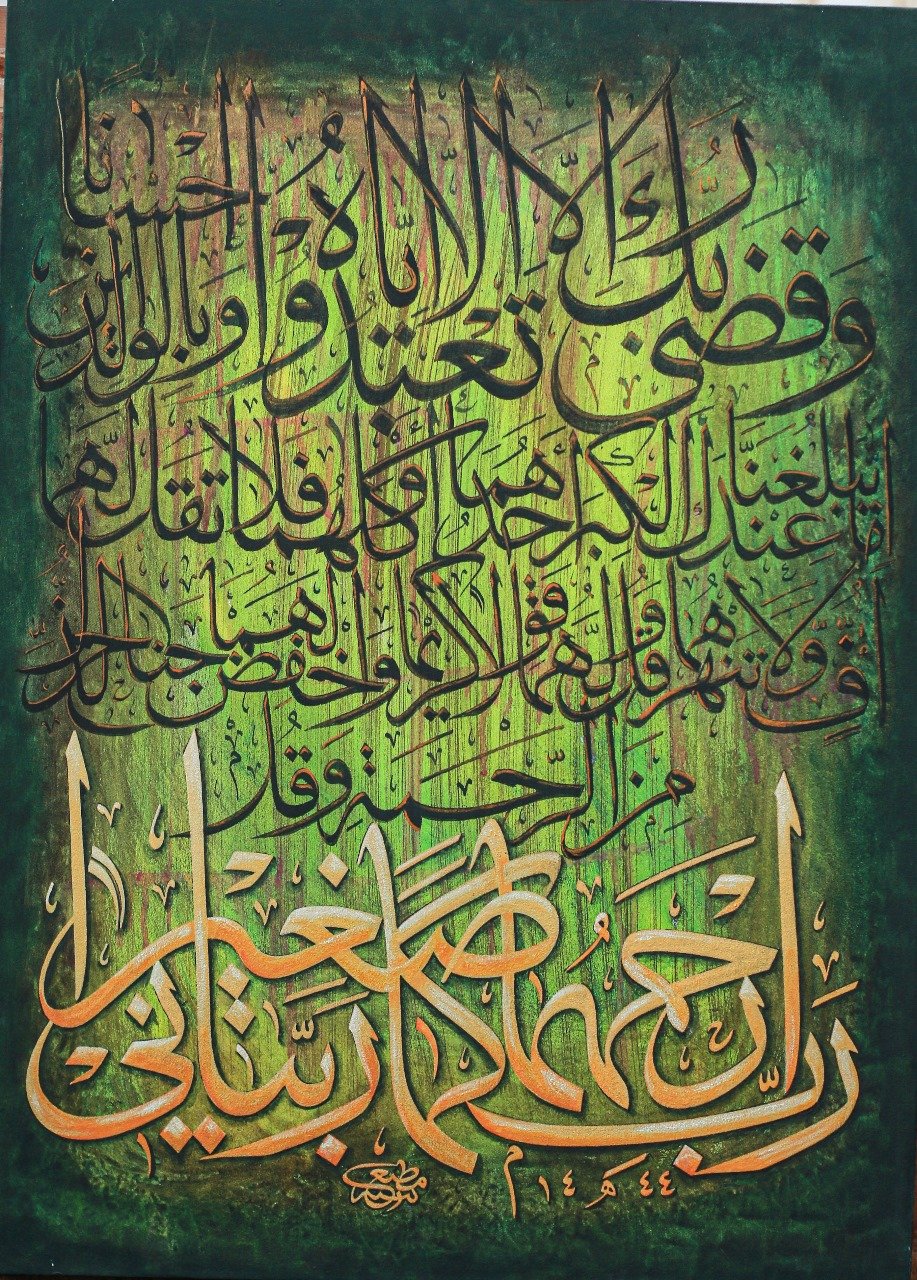 وقضى ربك ألا تعبدوا إلا إياه وبالوالدين إحسانا
إما يبلغن عندك الكبر أحدهما أو كلاهما فلا تقل لهما
أف ولا تنهرهما وقل لهما قولا كريما واخفض لهما جناح الذل
من الرحمة وقل
رب ارحمهما كما ربياني صغيرا
١٤ هـ ٤٤